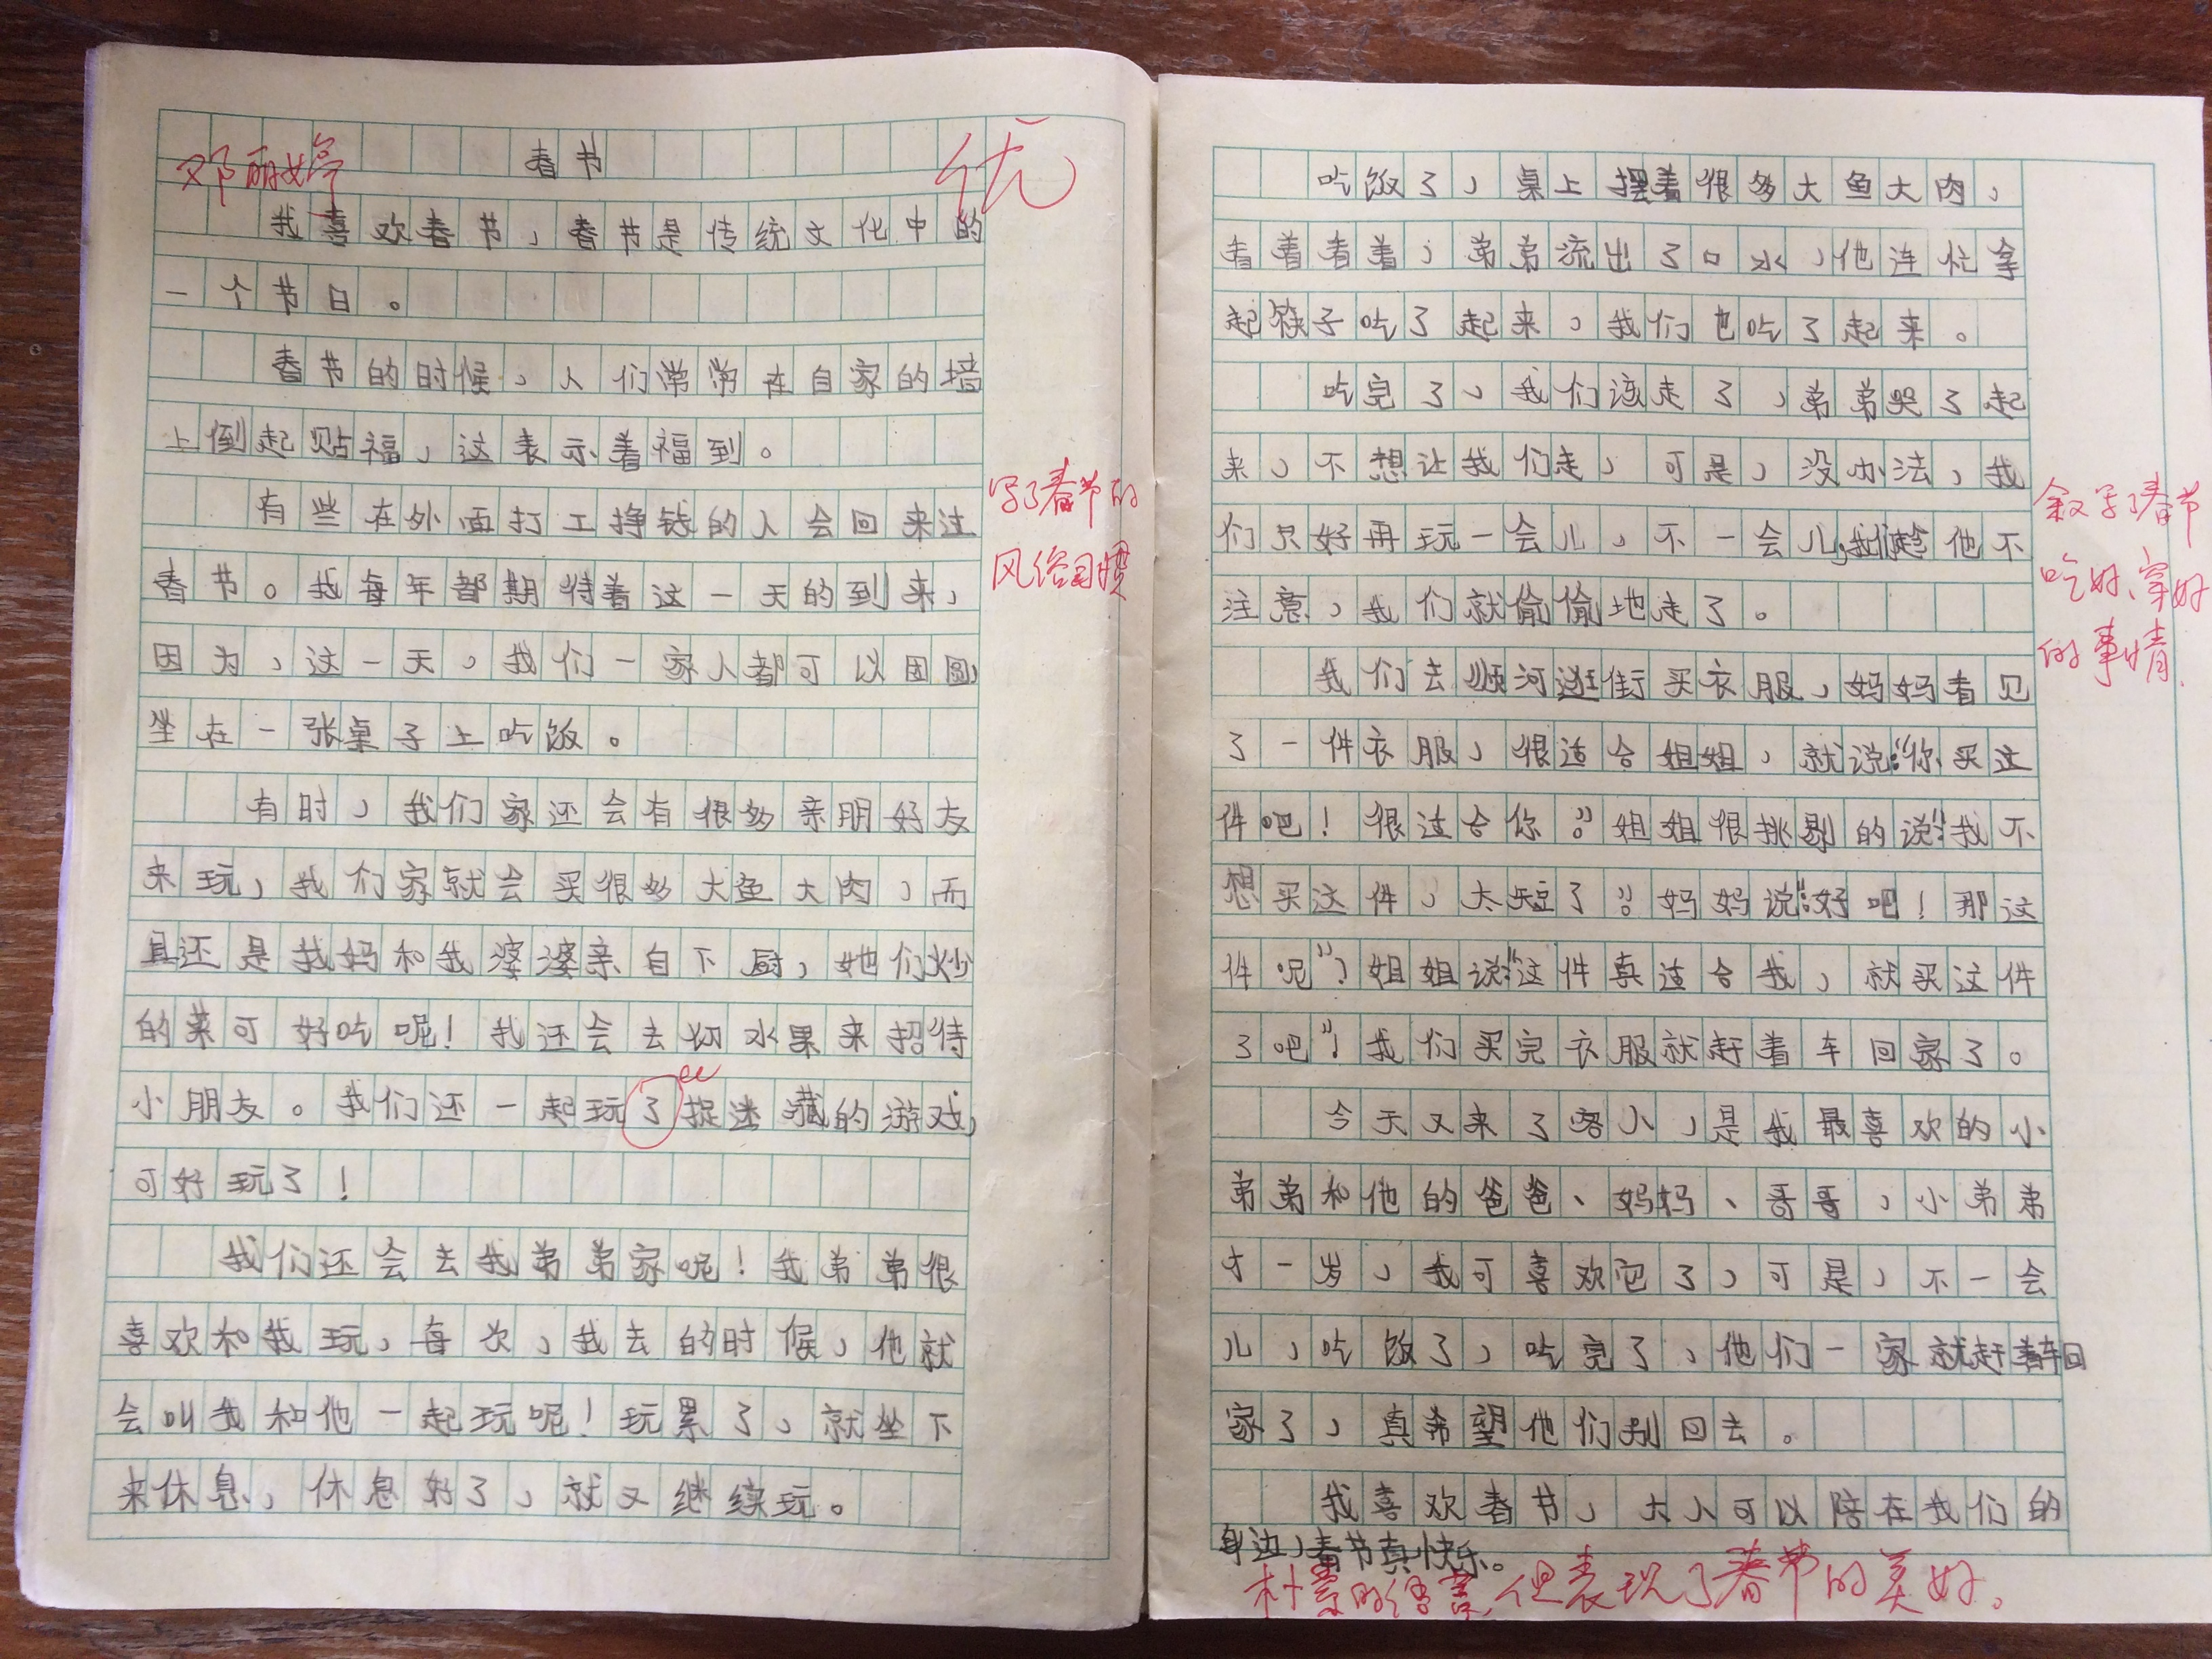 邓丽婷
春节
优
我喜欢春节，春节是传统文化中的
一个节日。
春节的时候，人们常常在自家的墙
上倒起贴福，这表示着福到。
有些在外面打工挣钱的人会回来过
春节。我每年都期待着这一天的到来，
因为，这一天，我们一家人都可以团圆，
坐在一张桌子上吃饭。
写了春节的
风俗习惯
有时，我们家还会有很多亲朋好友
来玩，我们家就会买很多大鱼大肉，而
且还是我妈和我婆婆亲自下厨，她们炒
的菜可好吃呢！我还会去切水果来招待
小朋友。我们还一起玩了捉迷藏的游戏，
可好玩了！
我们还会去我弟弟家呢！我弟弟很
喜欢和我玩，每次，我去的时候，他就
会叫我和他一起玩呢！玩累了，就坐下
来休息，休息好了，就又继续玩。
吃饭了，桌上摆着很多大鱼大肉，
看着看着，弟弟流出了口水，他连忙拿
起筷子吃了起来，我们也吃了起来。
吃完了，我们该走了，弟弟哭了起
来，不想让我们走，可是，没办法，我
们只好再玩一会儿，不一会儿，我们趁他不
注意，我们就偷偷地走了。
叙写了春节
吃好、穿好
的事情
我们去顺河逛街买衣服，妈妈看见
了一件衣服，很适合姐姐，就说：“你买这
件吧！很适合你。”姐姐很挑剔的说：“我不
想买这件，太短了。”妈妈说：“好吧！那这
件呢”？姐姐说：“这件真适合我，就买这件
了吧”！我们买完衣服就赶着车回家了。
今天又来了客人，是我最喜欢的小
弟弟和他的爸爸、妈妈、哥哥，小弟弟
才一岁，我可喜欢它了，可是，不一会
儿，吃饭了，吃完了，他们一家就赶着车回
家了，真希望他们别回去。
我喜欢春节，大人可以陪在我们的
身边，春节真快乐。
朴素的语言，但表现了春节的美好。